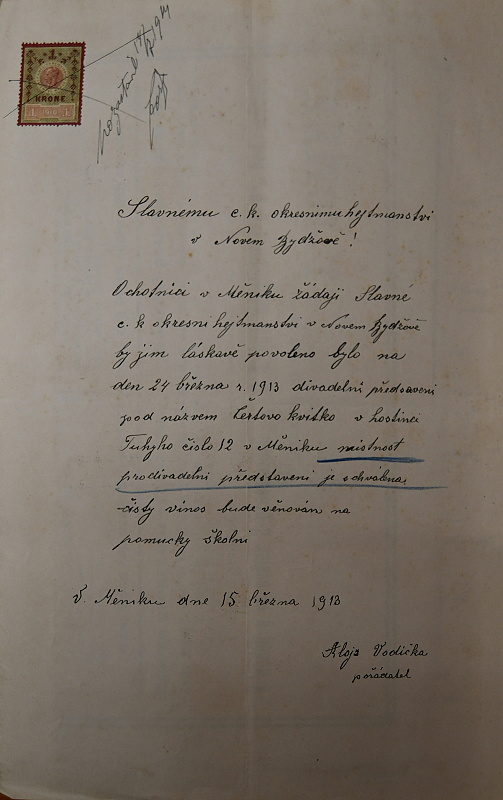 1
KRONE
1 1
1914
Slavnému c. k. okresnimu hejtmanstvi
v Novem Bydžově!
Ochotníci v Měniku žádaji Slavné
c. k okresni hejtmanstvi v Novem Bydžově
by jim láskavě povoleno bylo na
den 24 března r. 1913 divadelni předsaveni
pod názvem Čertovo kvitko v hostinci
Tuhyho čislo 12 v Měniku mistnost
pro divadelni představeni je schválna,
čisty vinos bude věnován na
pomucky školni
V Měniku dne 15 března 1913
Alojs Vodička
pořádatel